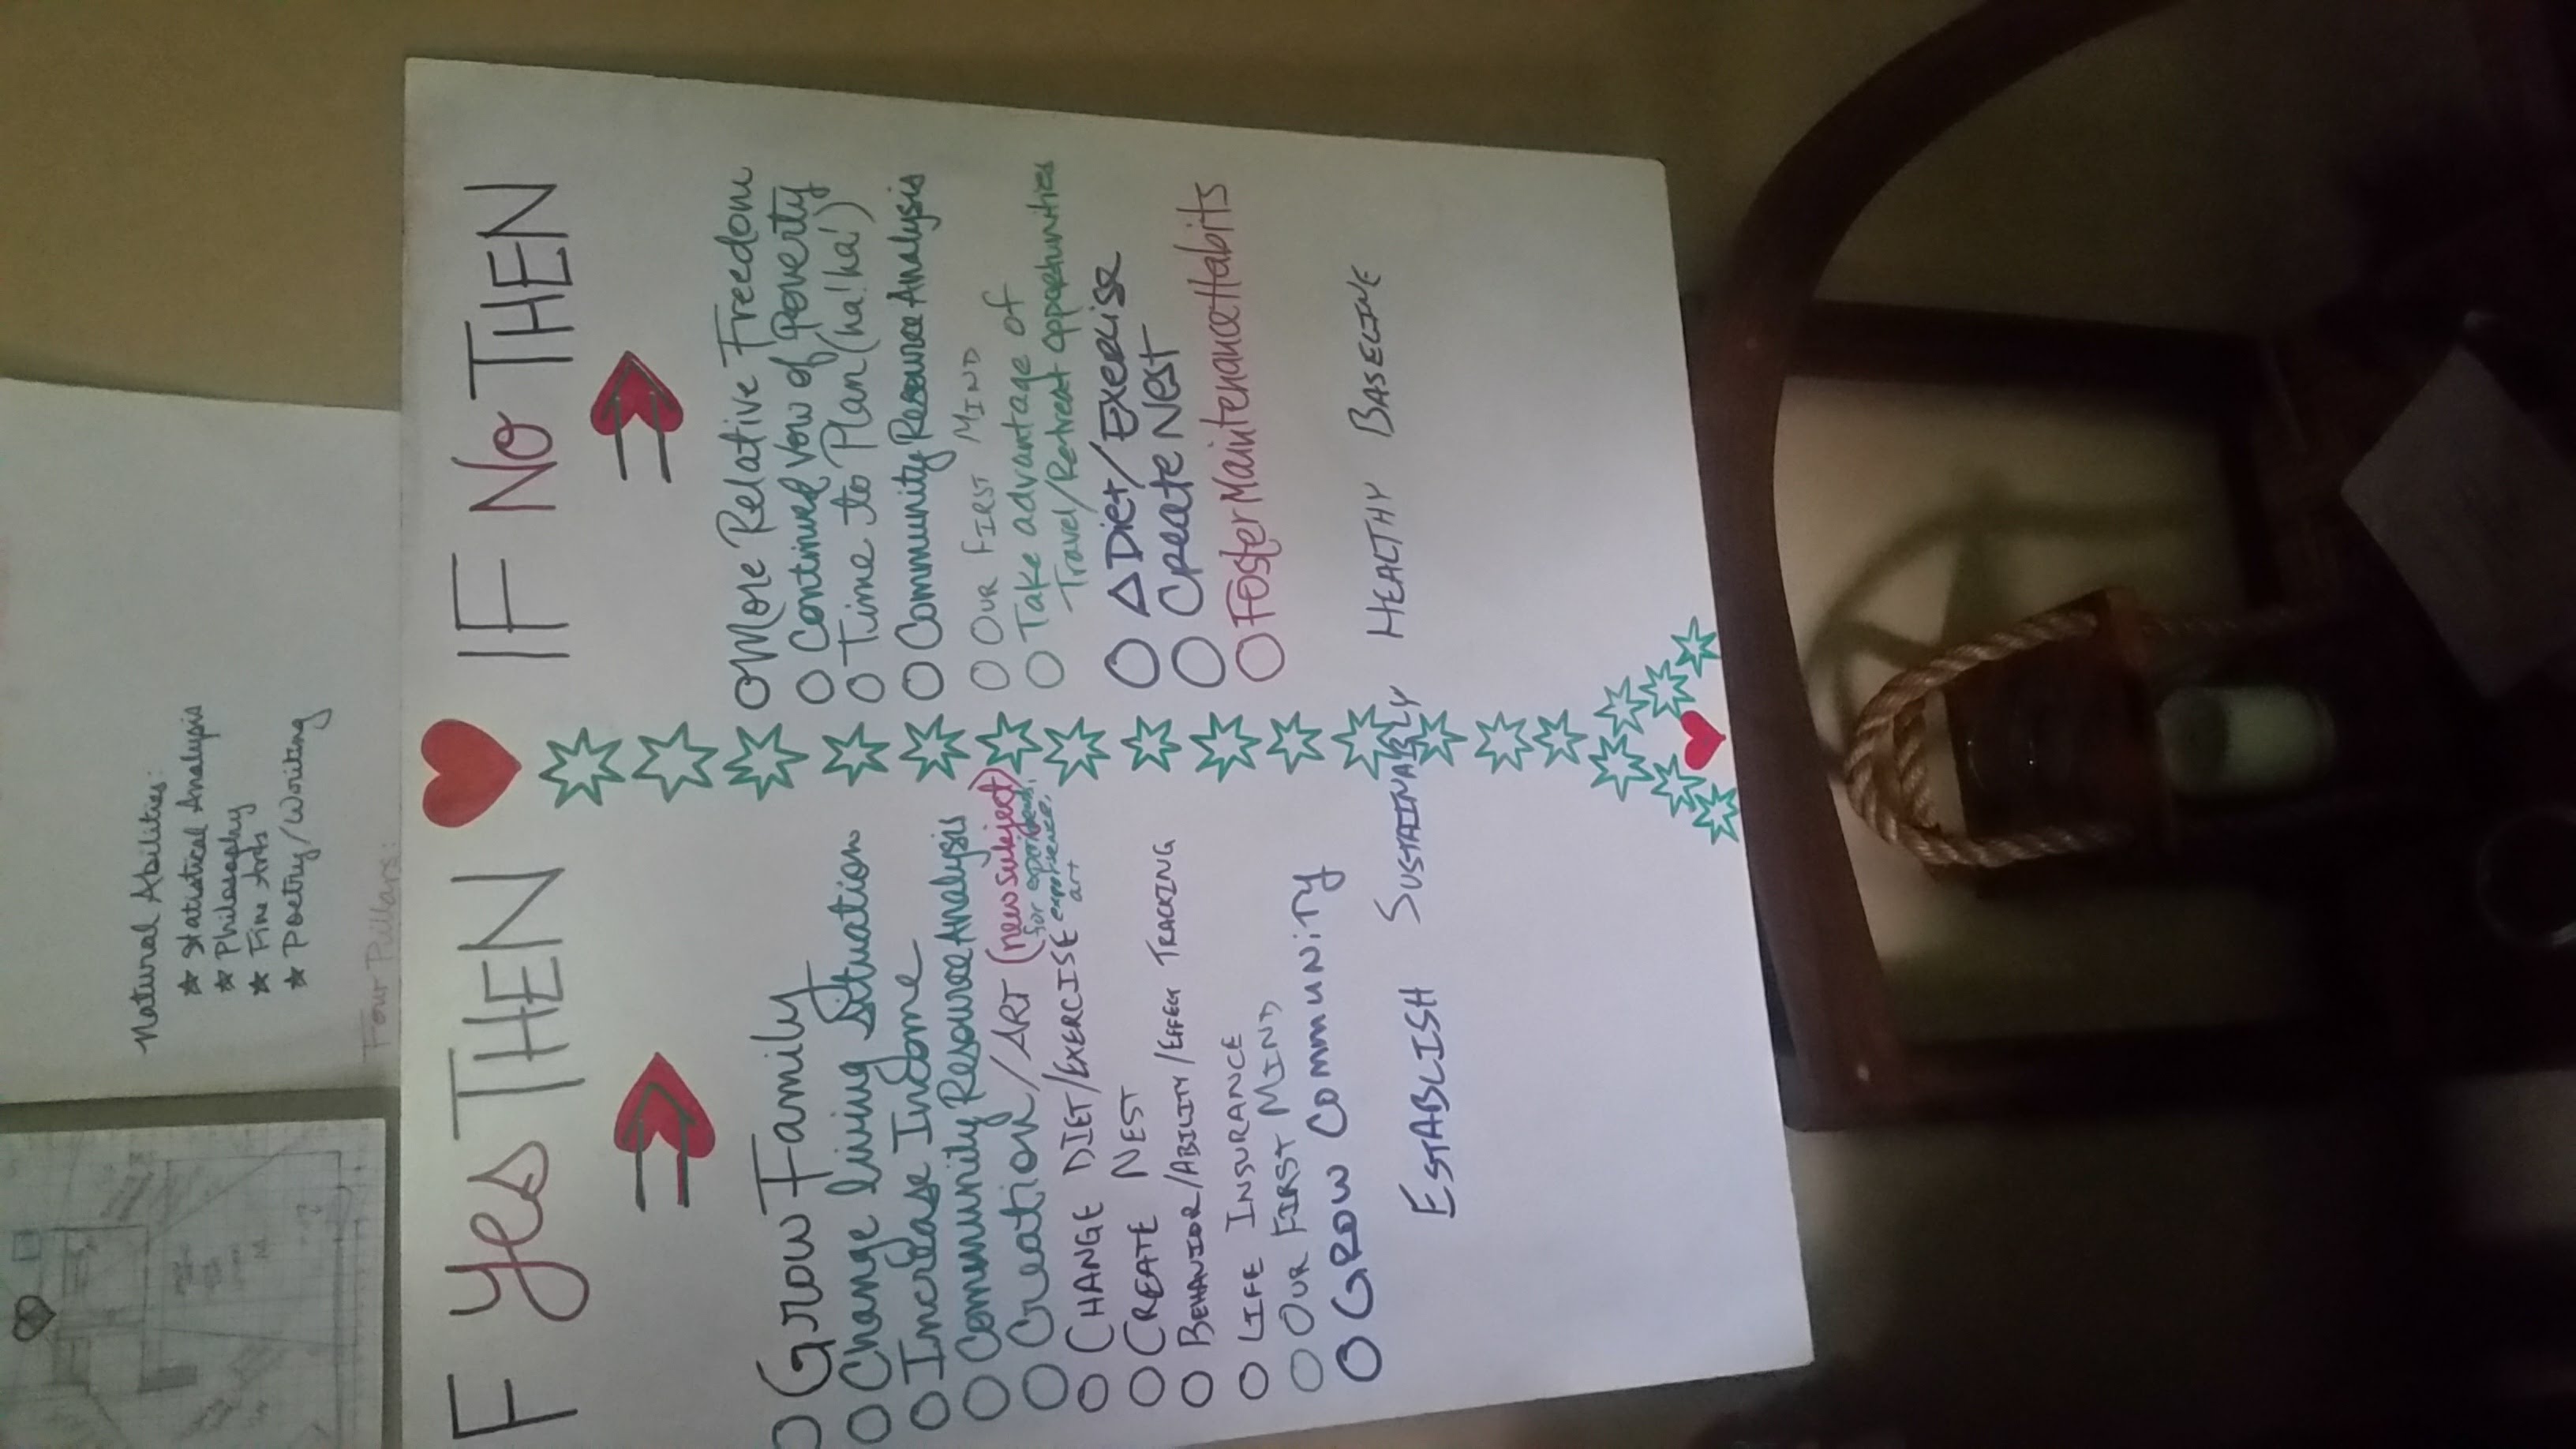 Natural Abilities:
★ Statistical Analysis
★ Philosophy
★ Fine Arts
★ Poetry/Writing
Four Pillars:
F Yes THEN
Grow Family
Change living Situation
Increase Income
Community Resource Analysis
Creation/ART (new subject)
for experiments,
experience,
art
CHANGE DIET/EXERCISE
CREATE NEST
BEHAVIOR/ABILITY/EFFECT TRACKING
LIFE INSURANCE
OUR FIRST MIND
GROW COMMUNITY
IF No THEN
More Relative Freedom
Continued Vow of Poverty
Time to Plan (ha! ha!)
Community Resource Analysis
OUR FIRST MIND
Take advantage of
Travel/Retreat opportunities
Δ Diet/Exercise
Create Nest
Foster Maintenance Habits
ESTABLISH SUSTAINABLY HEALTHY BASELINE